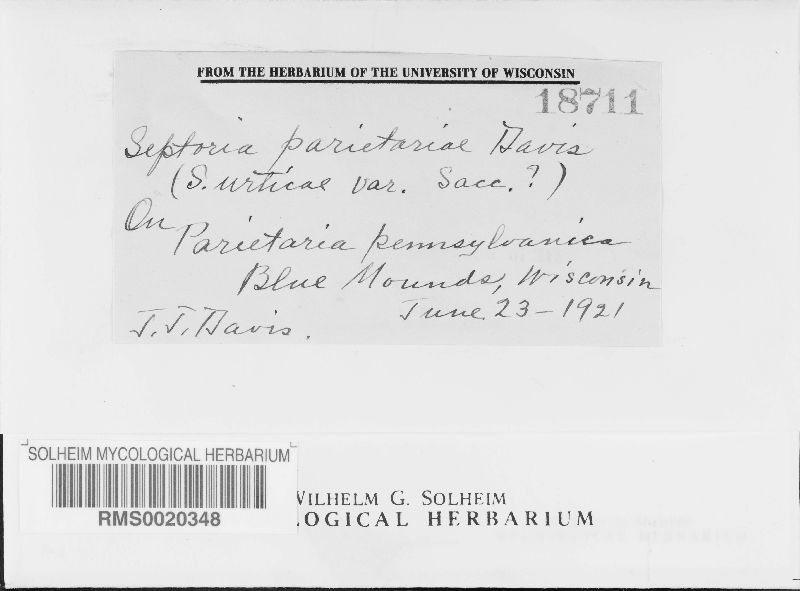 FROM THE HERBARIUM OF THE UNIVERSITY OF WISCONSIN
18711
Septoria parietariae Davis
(S. urticae var. Sacc.?)
On Parietaria pennsylvanica
Blue Mounds, Wisconsin
June 23-1921
J.J. Davis.
SOLHEIM MYCOLOGICAL HERBARIUM
RMS0020348
WILHELM G. SOLHEIM
LOGICAL HERBARIUM